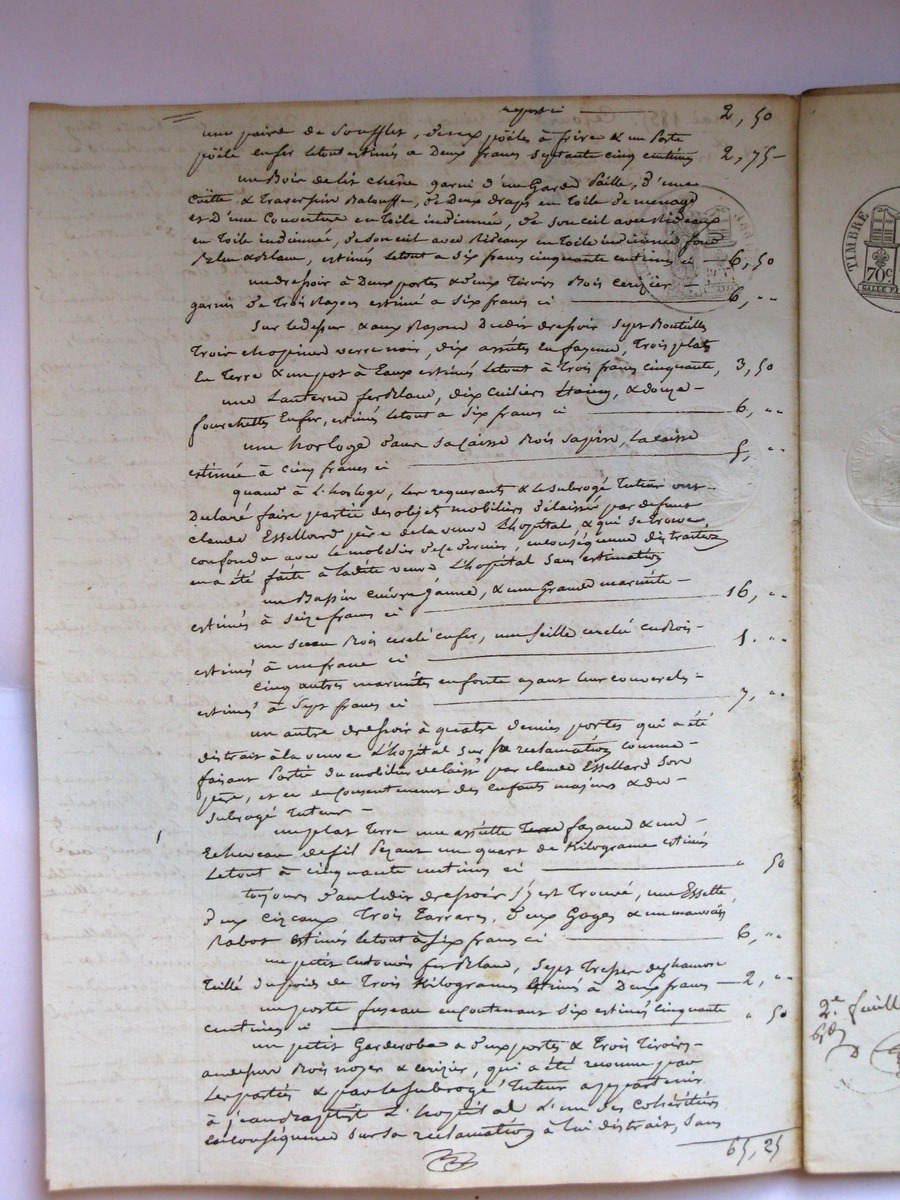 report ci 2, 50
une paire de Soufflet, deux pöëles à frire & un Porte
pöële enfer letout estimés a Deux francs Septante cinq centimes 2, 75
un Bois de lit chêne garni d'un Garde Paille, d'une
Coëtte & traversin Balouffe, de Deux draps en toile de menage
et d'une Couverture en toile indienne, de son ciel avec Rideaux
en toile indienne, de son ciel avec Rideaux en toile indienne fond
Bleu & Blanc, estimés letout a six francs cinquante centimes ci 6, 50
un dressoir à Deux portes & deux tiroirs Bois cerisier
garni de Trois Rayons estimé a six francs ci 6, "
Sur ledessus & aux Rayons dudit dressoir Sept Bouteilles
Trois chopines verre noir, dix assiettes en fayence, Trois plats
en Terre & un pot à Eaux estimés letout à Trois francs cinquante, 3, 50
une Lanterne fer Blanc, dix cuilliers Etaing, & douze
fourchettes enfer, estimés letout a six francs ci 6, "
une horloge dans sa caisse Bois sapin, La caisse
estimée à cinq francs ci 5, "
quand à l'horloge, les requerants & le subrogé tuteur ont
Declaré faire partie des objets mobiliers délaissés par defunt
claude Essellard père de la veuve L'hopital & qui se trouve
confondu avec le mobilier de ce dernier, en conséquence distraction
en a été faite à ladite veuve L'hôpital Sans estimation
un Bassin cuivre jaunne, & une Grande marmite
estimés à seize francs ci 16, "
un sceau Bois cerclé enfer, une seille cerclée en Bois
estimés à un franc ci 1. "
Cinq autres marmites en fonte ayant leur couvercles
estimés à Sept francs ci 7, "
un autre dressoir à quatre demies portes qui a été
distrait à la veuve L'hopital sur sa reclamation comme
faisant Partie du mobilier délaissé par claude Essellard Son
père, et ce en consentement des enfants majeurs & du
Subrogé tuteur
un plat Terre une assiette Terre fayance & un
Echeveau de fil Pezant un quart de Kilograme estimés
letout à cinquante centimes ci " 50
toujours dans ledit dressoir s'y est Trouvé, une Essette,
deux Cizeaux Trois Tarrares, deux Goges & un mauvais
Rabot estimés letout à six francs ci 6, "
un petit Entonnoir fer Blanc, Sept Tresses de chanvre
Teillé du poids de Trois Kilogrames Estimés à Deux francs 2, "
un porte fuseau en contenant six estimés cinquante
centimes ci " 50
un petit Garderobe a deux portes & trois tiroirs
au dessus Bois noyer & cerisier, qui a été reconnu par
Les parties & par le subrogé tuteur appartenir
à jean Baptiste L'hopital L'un des cohéritiers
en conséquence Sur sa reclamation à lui distrait, Sans
65, 25
TIMBRE
70c
2e feuille